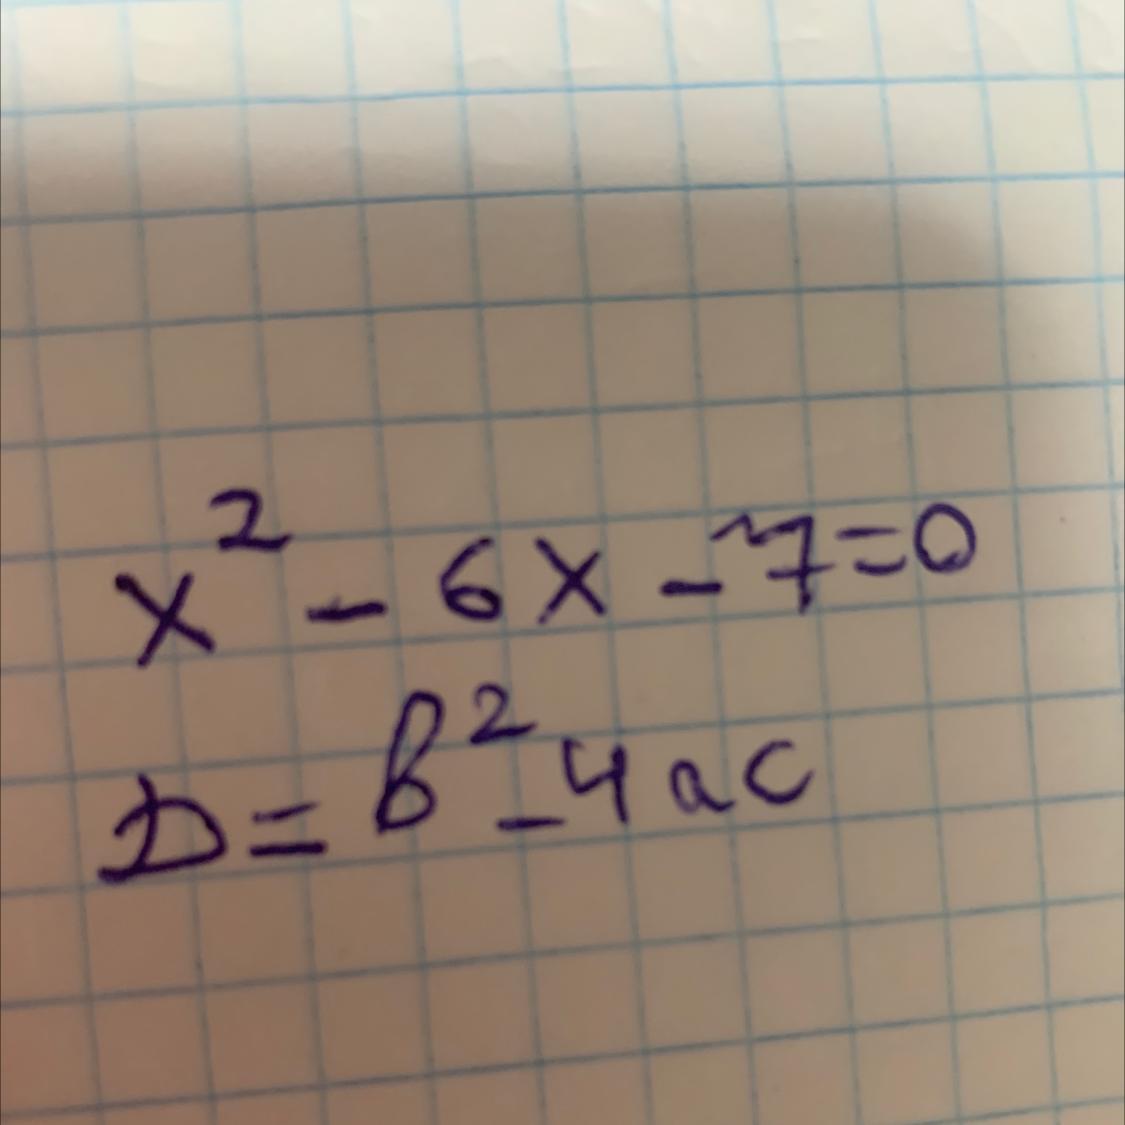 x² - 6x - 7 = 0
D = b² - 4ac